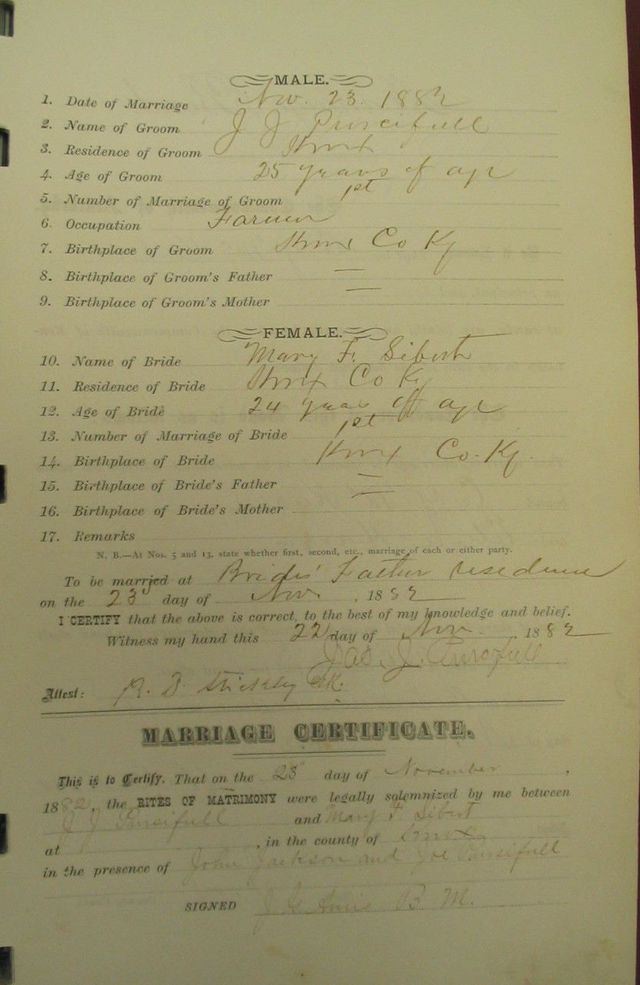 MALE.
1. Date of Marriage Nov. 23. 1882
2. Name of Groom J J Pursifull
3. Residence of Groom Knox
4. Age of Groom 25 years of age
5. Number of Marriage of Groom 1st
6. Occupation Farmer
7. Birthplace of Groom Knox Co Ky
8. Birthplace of Groom's Father —
9. Birthplace of Groom's Mother —
FEMALE.
10. Name of Bride Mary F. Sibert
11. Residence of Bride Knox Co Ky
12. Age of Bride 24 years of age
13. Number of Marriage of Bride 1st
14. Birthplace of Bride Knox Co. Ky.
15. Birthplace of Bride's Father —
16. Birthplace of Bride's Mother —
17. Remarks
N. B.—At Nos. 5 and 13, state whether first, second, etc., marriage of each or either party.
To be married at Brides' Father residence
on the 23d day of Nov. , 1882
I CERTIFY that the above is correct, to the best of my knowledge and belief.
Witness my hand this 22 day of Nov. , 1882
Jas. J. Pursifull
Attest: R. D. Stickley clk.
MARRIAGE CERTIFICATE.
This is to Certify, That on the 23 day of November ,
1882, the RITES OF MATRIMONY were legally solemnized by me between
J J Pursifull and Mary F Sibert
at , in the county of Knox
in the presence of John Jackson and Joe Pursifull
SIGNED J. G. B. M.